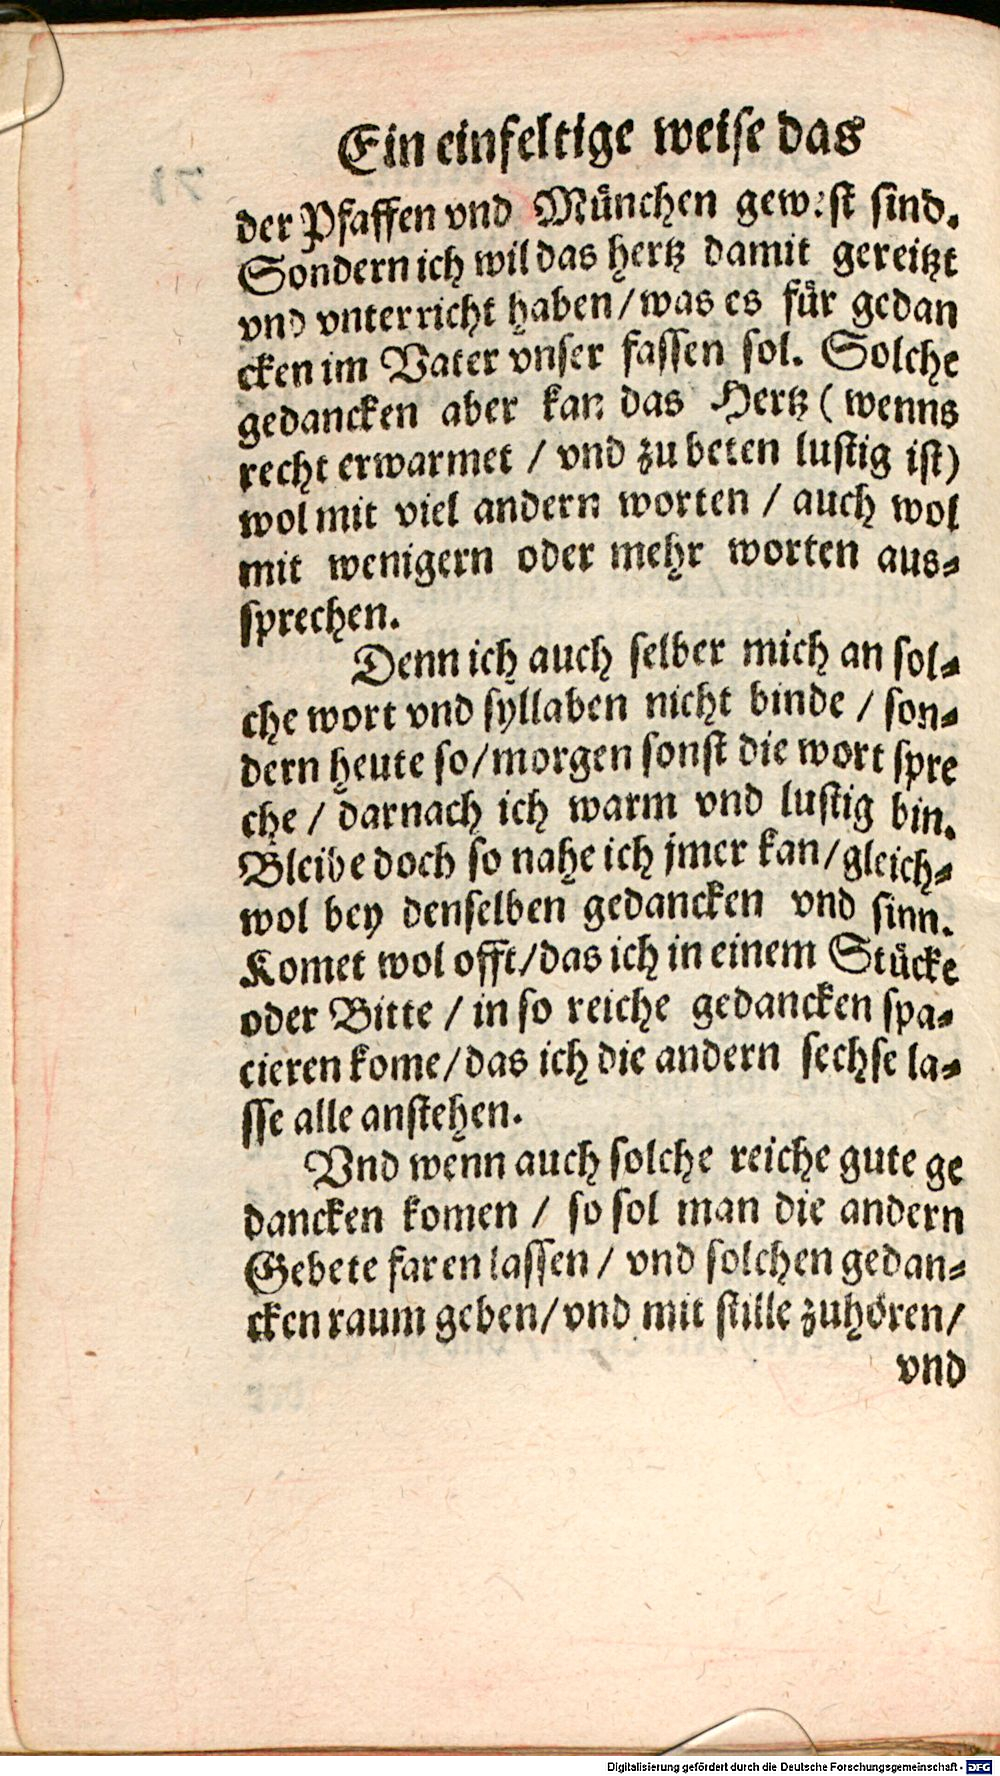 Ein einfeltige weise das
der Pfaffen vnd München gewest sind.
Sondern ich wil das hertz damit gereitzt
vnd vnterricht haben/was es für gedan
cken im Vater vnser fassen sol. Solche
gedancken aber kan das Hertz ( wenns
recht erwarmet / vnd zu beten lustig ist)
wol mit viel andern worten / auch wol
mit wenigern oder mehr worten aus-
sprechen.
Denn ich auch selber mich an sol-
che wort vnd syllaben nicht binde / son-
dern heute so/morgen sonst die wort spre
che / darnach ich warm vnd lustig bin.
Bleibe doch so nahe ich jmer kan/gleich-
wol bey denselben gedancken vnd sinn.
Komet wol offt/das ich in einem Stücke
oder Bitte / in so reiche gedancken spa-
cieren kome/das ich die andern sechse la-
sse alle anstehen.
Vnd wenn auch solche reiche gute ge
dancken komen / so sol man die andern
Gebete faren lassen / vnd solchen gedan-
cken raum geben/vnd mit stille zuhören/
vnd
Digitalisierung gefördert durch die Deutsche Forschungsgemeinschaft - DFG